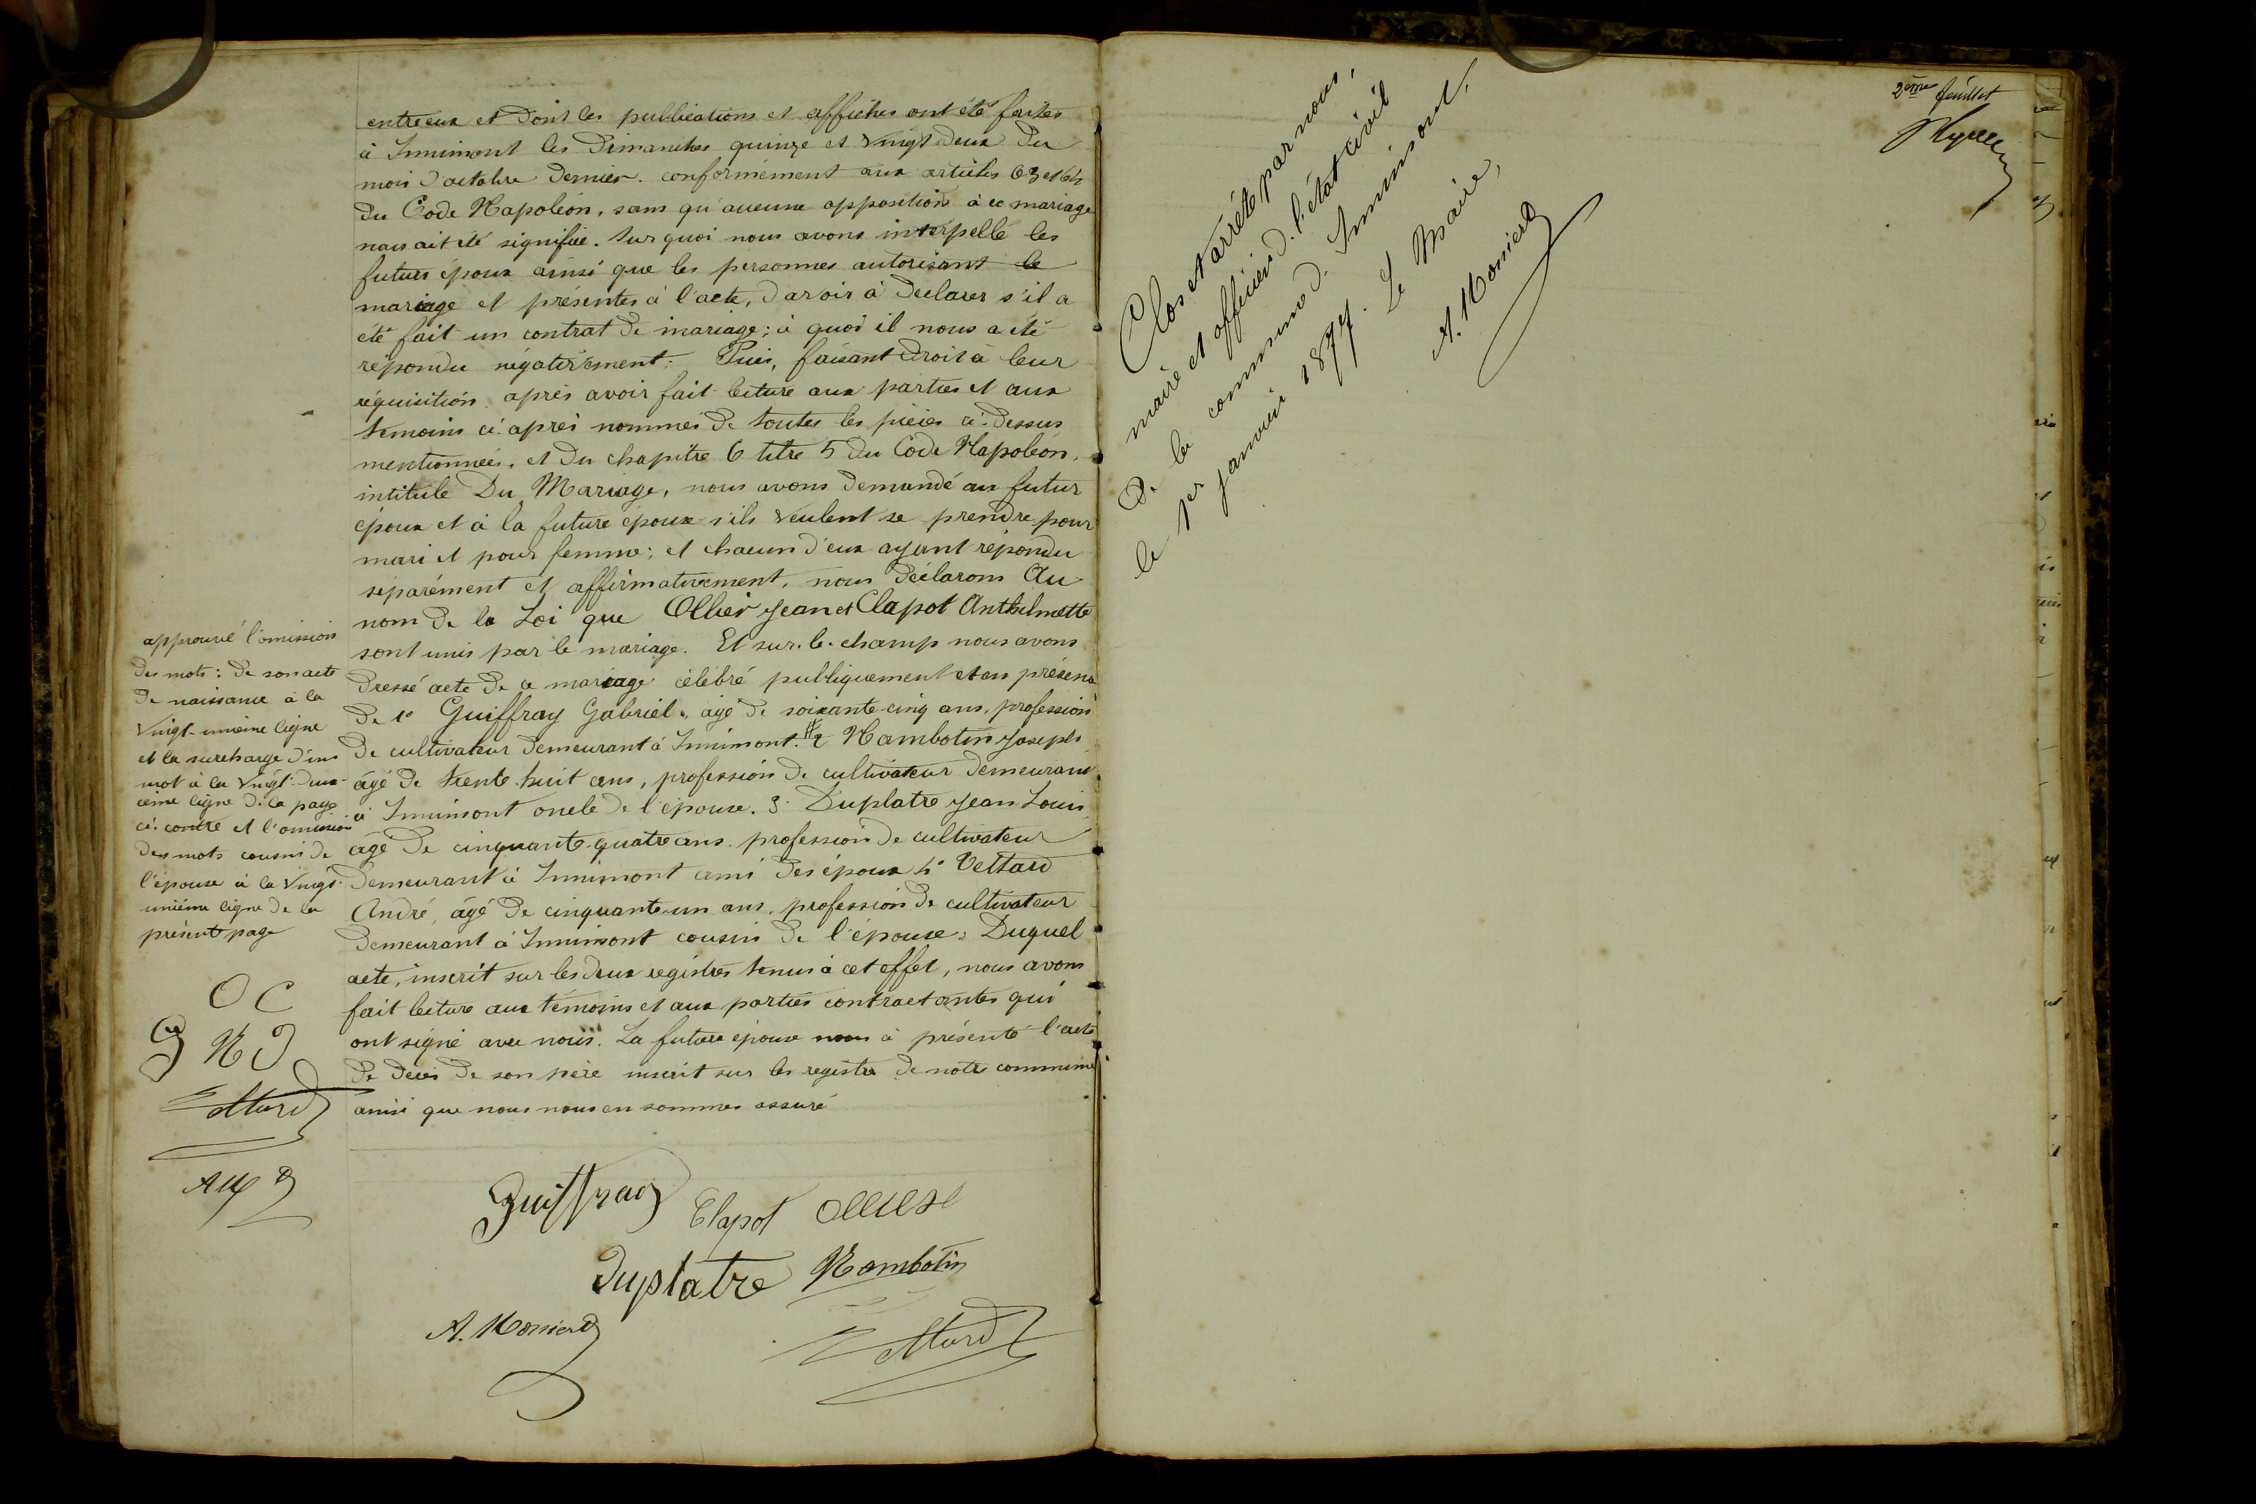 entreeux et dont les publications et affiches ont été faites
à Innimont les Dimanches quinze et vingt deux du
mois d'octobre dernier. conformément aux articles 63 et 64
du Code Napoléon, sans qu'aucune opposition à ce mariage
nous ait été signifiée. Sur quoi nous avons interpellé les
futurs époux ainsi que les personnes autorisant le
mariage et présentes à l'acte, d'avoir à déclarer s'il a
été fait un contrat de mariage; à quoi il nous a été
répondu négativement. Puis, faisant droit à leur
réquisition après avoir fait lecture aux parties et aux
témoins ci-après nommés de toutes les pièces ci-dessus
mentionnées, et du chapitre 6 titre 5 du Code Napoléon,
intitulé Du Mariage, nous avons demandé au futur
époux et à la future épouse s'ils veulent se prendre pour
mari et pour femme; et chacun d'eux ayant répondu
séparément et affirmativement, nous déclarons Au
nom de la Loi que Ollier Jean et Clapot Anthelmette
sont unis par le mariage. Et sur-le-champ nous avons
dressé acte de ce mariage célébré publiquement et en présence
de 1° Guiffray Gabriel, âgé de soixante-cinq ans, profession
de cultivateur demeurant à Innimont. # 2 Nambotin Joseph
âgé de trente-huit ans, profession de cultivateur demeurant
à Innimont oncle de l'épouse. 3° Duplatre Jean Louis
âgé de cinquante-quatre ans profession de cultivateur
demeurant à Innimont ami des époux 4° Vettard
André, âgé de cinquante-un ans, profession de cultivateur
demeurant à Innimont cousin de l'épouse; Duquel
acte, inscrit sur les deux registres tenus à cet effet, nous avons
fait lecture aux témoins et aux parties contractantes qui
ont signé avec nous. La future épouse nous à présenté l'acte
de décès de son père inscrit sur les registre de notre commune
ainsi que nous nous en sommes assuré
approuvé l'omission
des mots: de son acte
de naissance à la
vingt-unième ligne
et la surcharge d'un
mot à la vingt-deux-
ième ligne de la page
ci-contre et l'omission
des mots cousin de
l'épouse à la vingt-
unième ligne de la
présente page
O C
G N D
Vettard
AM
Guiffray Clapot Ollier
Duplatre Nambotin
A. Monierd
Vettard
Clos et arrêté par nous,
maire et officier de l'état civil
de la commune d. Innimont,
le 1er janvier 1877. Le Maire,
A. Monierd
2ème feuillet